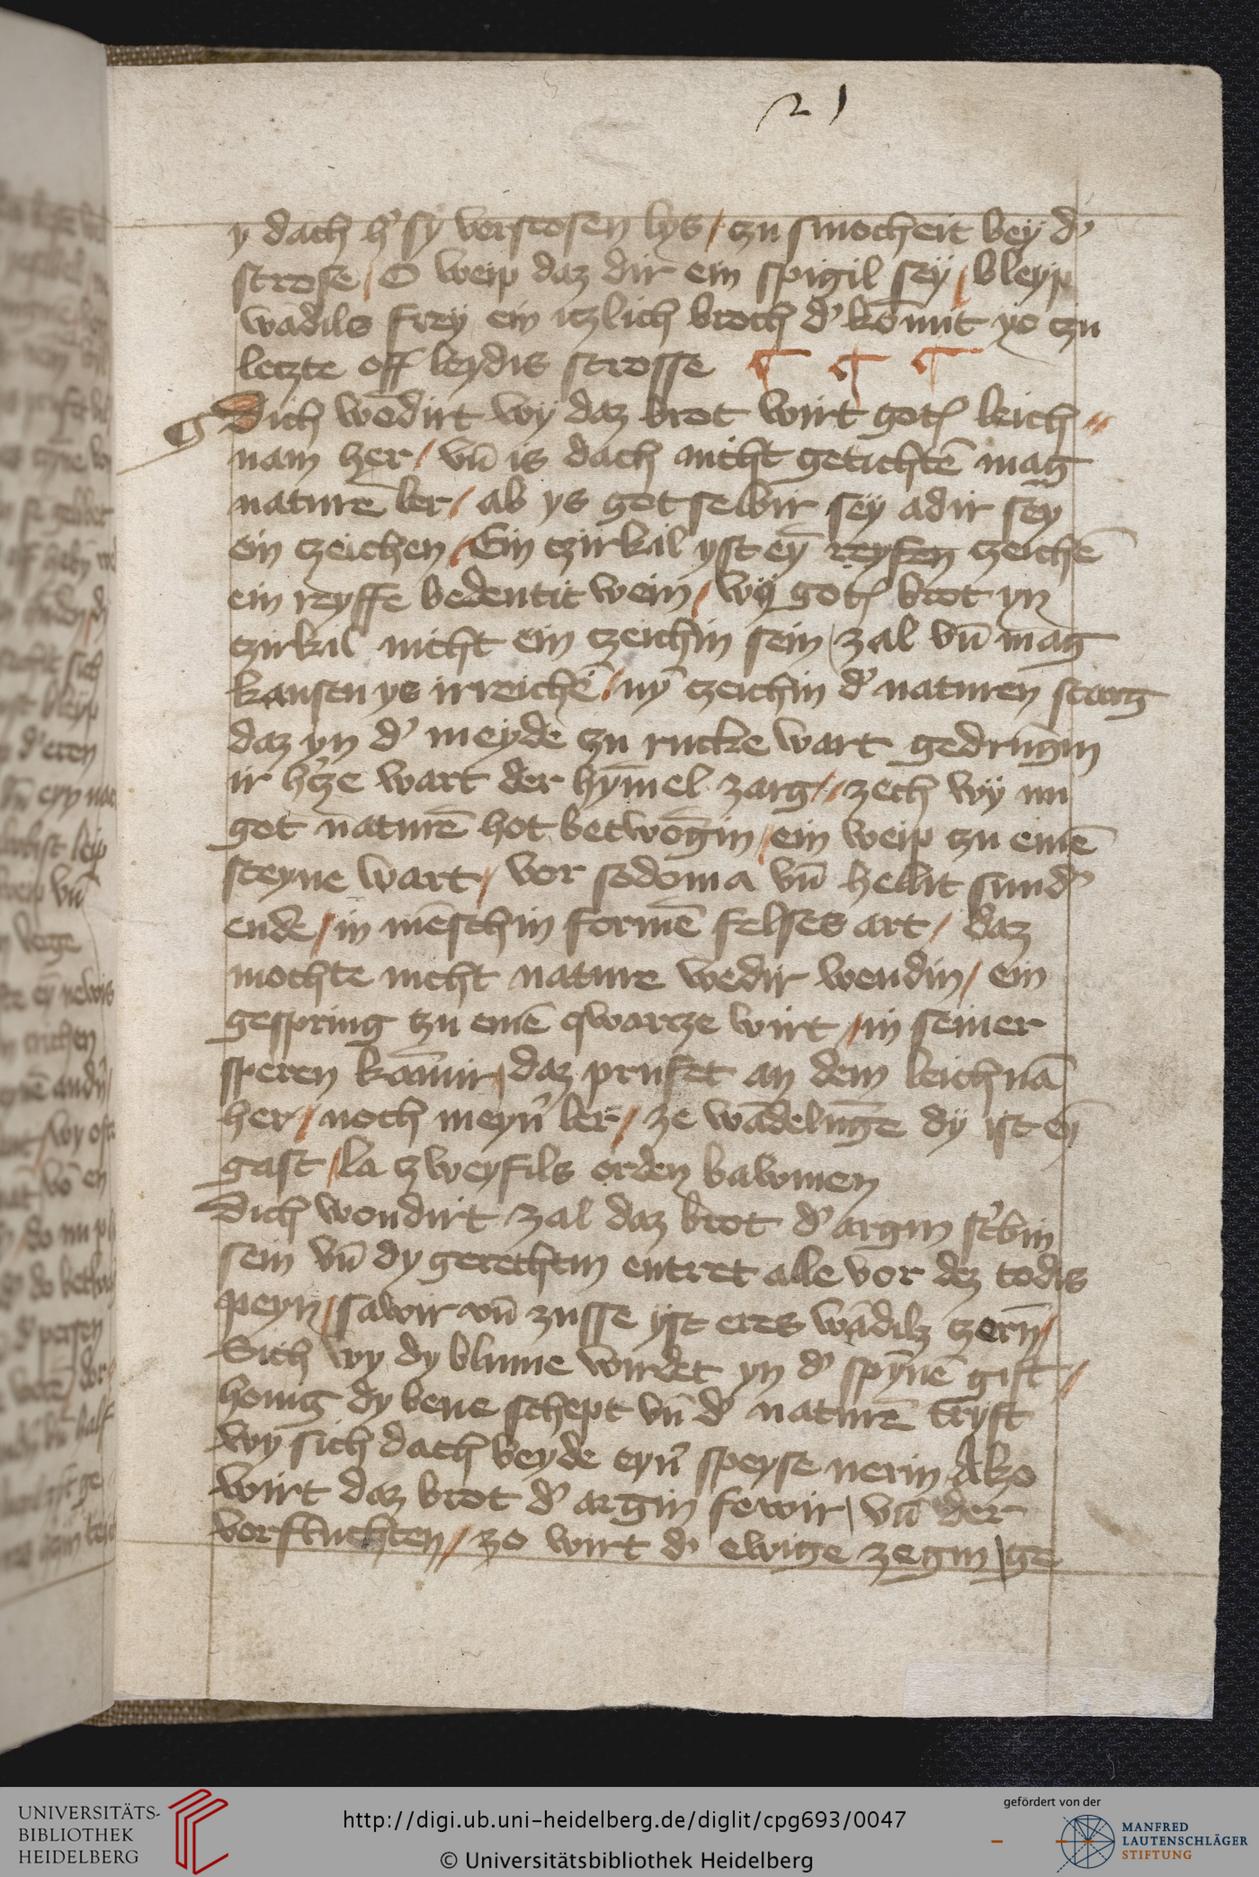 21
y dach h' sy vorstosen lys / czu smocheit bey d'
strose / O weip daz dir ein spigil sey / bleyp
wādils frey ein iczlich broch d' kom̄mt yo czu
leczte off leydis strosse ¶ ¶ ¶
Dich wōdirt wy daz brot wirt got leich //
nam her / vn̄ is dach nicht getichtē mag
naturē ler / ab ys got selbir sey adir sey
ein czeichen / Ein czirkil yst ey̅ reyfen czeichē
ein reyffe bedeutit wein / wy got brot yn
czirkil nicht ein czeichin sein / zal vn̄ mag
kanstu ys irreichē / ny̅ czeichin d' naturen starg
daz yn d' meyde czu rucke wart gedrūgin
ir h'cze wart der hȳmel zarg // zech wy nu
got naturē hot betwōgin / ein weip czu einē
steyne wart / vor sodoma vn̄ hellit sund'
ende / in mēschin formē felses art / daz
mochte nicht nature wedir wendin / ein
gespring czu einē qwarcze wirt / in seiner
speren kam̄ir / daz prufet an dem leichnā
her / noch meyn' ler / ze wādelūge dy ist eȳ
gast / la czweyfils orden bawmen
Dich wondirt zal daz brot d' argin st'bin
sein vn̄ dy gerechtin entret alle vor dez todis
peyn / sawir vn̄ zusse yst eres wādilz czern̄ /
Sich wy dy blume wirdet yn d' spȳnē gift //
honig dy bene schept vn̄ d' naturē tryft
wy sich dach beyde eyn' speyse nerin Alzo
wirt daz brot d' argin fewir / vn̄ der
vorfluchten // zo wirt d' ewige zegin / ge
UNIVERSITÄTS-
BIBLIOTHEK
HEIDELBERG
http://digi.ub.uni-heidelberg.de/diglit/cpg693/0047
© Universitätsbibliothek Heidelberg
gefördert von der
MANFRED
LAUTENSCHLÄGER
STIFTUNG